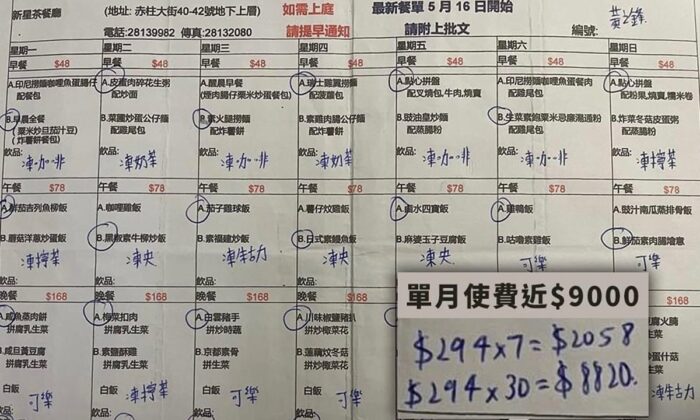 新星茶餐廳
(地址: 赤柱大街40-42號地下上層)
如需上庭
最新餐單 5 月 16 日開始
電話:28139982 傳真:28132080
請提早通知
請附上批文
編號:
星期一 星期二 星期三 星期四 星期五 星期六 星期日
早餐 $48 早餐 $48 早餐 $48 早餐 $48 早餐 $48 早餐 $48 早餐 $48
A.印尼撈麵咖哩魚蛋腸仔
配餐包
B.早晨全餐
(粟米炒旦茄汁豆)
(炸薯餅餐包)
飲品: 凍咖啡
A.皮蛋肉碎花生粥
配炒面
B.菜圃炒蛋公仔麵
配餐包
飲品: 凍奶茶
A.醒晨早餐
B.素火腿撈麵
配炸薯餅
飲品: 凍咖啡
A.瑞士雞翼撈麵
配菠蘿包
B.素雞肉腸公仔麵
配炸薯餅
飲品: 凍奶茶
A.點心拼盤
配叉燒包,牛肉,燒賣
B.豉油皇炒麵
配蒸腸粉
飲品: 凍咖啡
A.印尼撈麵咖哩魚蛋餐肉
配餐包
B.生菜素鮑粟米忌廉湯通粉
配雞尾包
飲品: 凍咖啡
A.點心拼盤
配粉果,燒賣,糯米卷
B.炸菜冬菇皮蛋粥
配蒸腸粉
飲品: 凍檸茶
午餐 $78 午餐 $78 午餐 $78 午餐 $78 午餐 $78 午餐 $78 午餐 $78
A.鮮茄吉列魚柳飯
B.蘑菇洋蔥炒蛋飯
飲品: 凍檸茶
A.咖哩雞飯
B.黑椒素牛柳炒飯
飲品: 凍央
A.茄子雞球飯
B.素福建炒飯
飲品: 凍朱古力
A.薯仔炆雞飯
B.日式素鰻魚飯
飲品: 凍央
A.鹵水四寶飯
B.麻婆玉子豆腐飯
飲品: 凍央
A.雞鴨飯
B.咕嚕素雞飯
飲品: 可樂
A.豉汁南瓜蒸排骨飯
B.鮮茄素肉腸燴意
飲品: 可樂
晚餐 $168 晚餐 $168 晚餐 $168 晚餐 $168
A.咸魚蒸肉餅
拼腐乳生菜
B.咸旦黃豆腐
拼生菜
白飯 可樂
A.梅菜扣肉
拼腐乳生菜
B.素鹽酥雞
拼生菜
白飯 凍檸茶
A.白雲豬手
拼炒時蔬
B.京都素骨
拼生菜
白飯 可樂
A.川味椒鹽豬扒
拼炒欖菜花
B.蓮藕炆冬菇
拼炒欖菜花
白飯 可樂
單月使費近$9000
$294×7=$2058
$294×30=$8820.